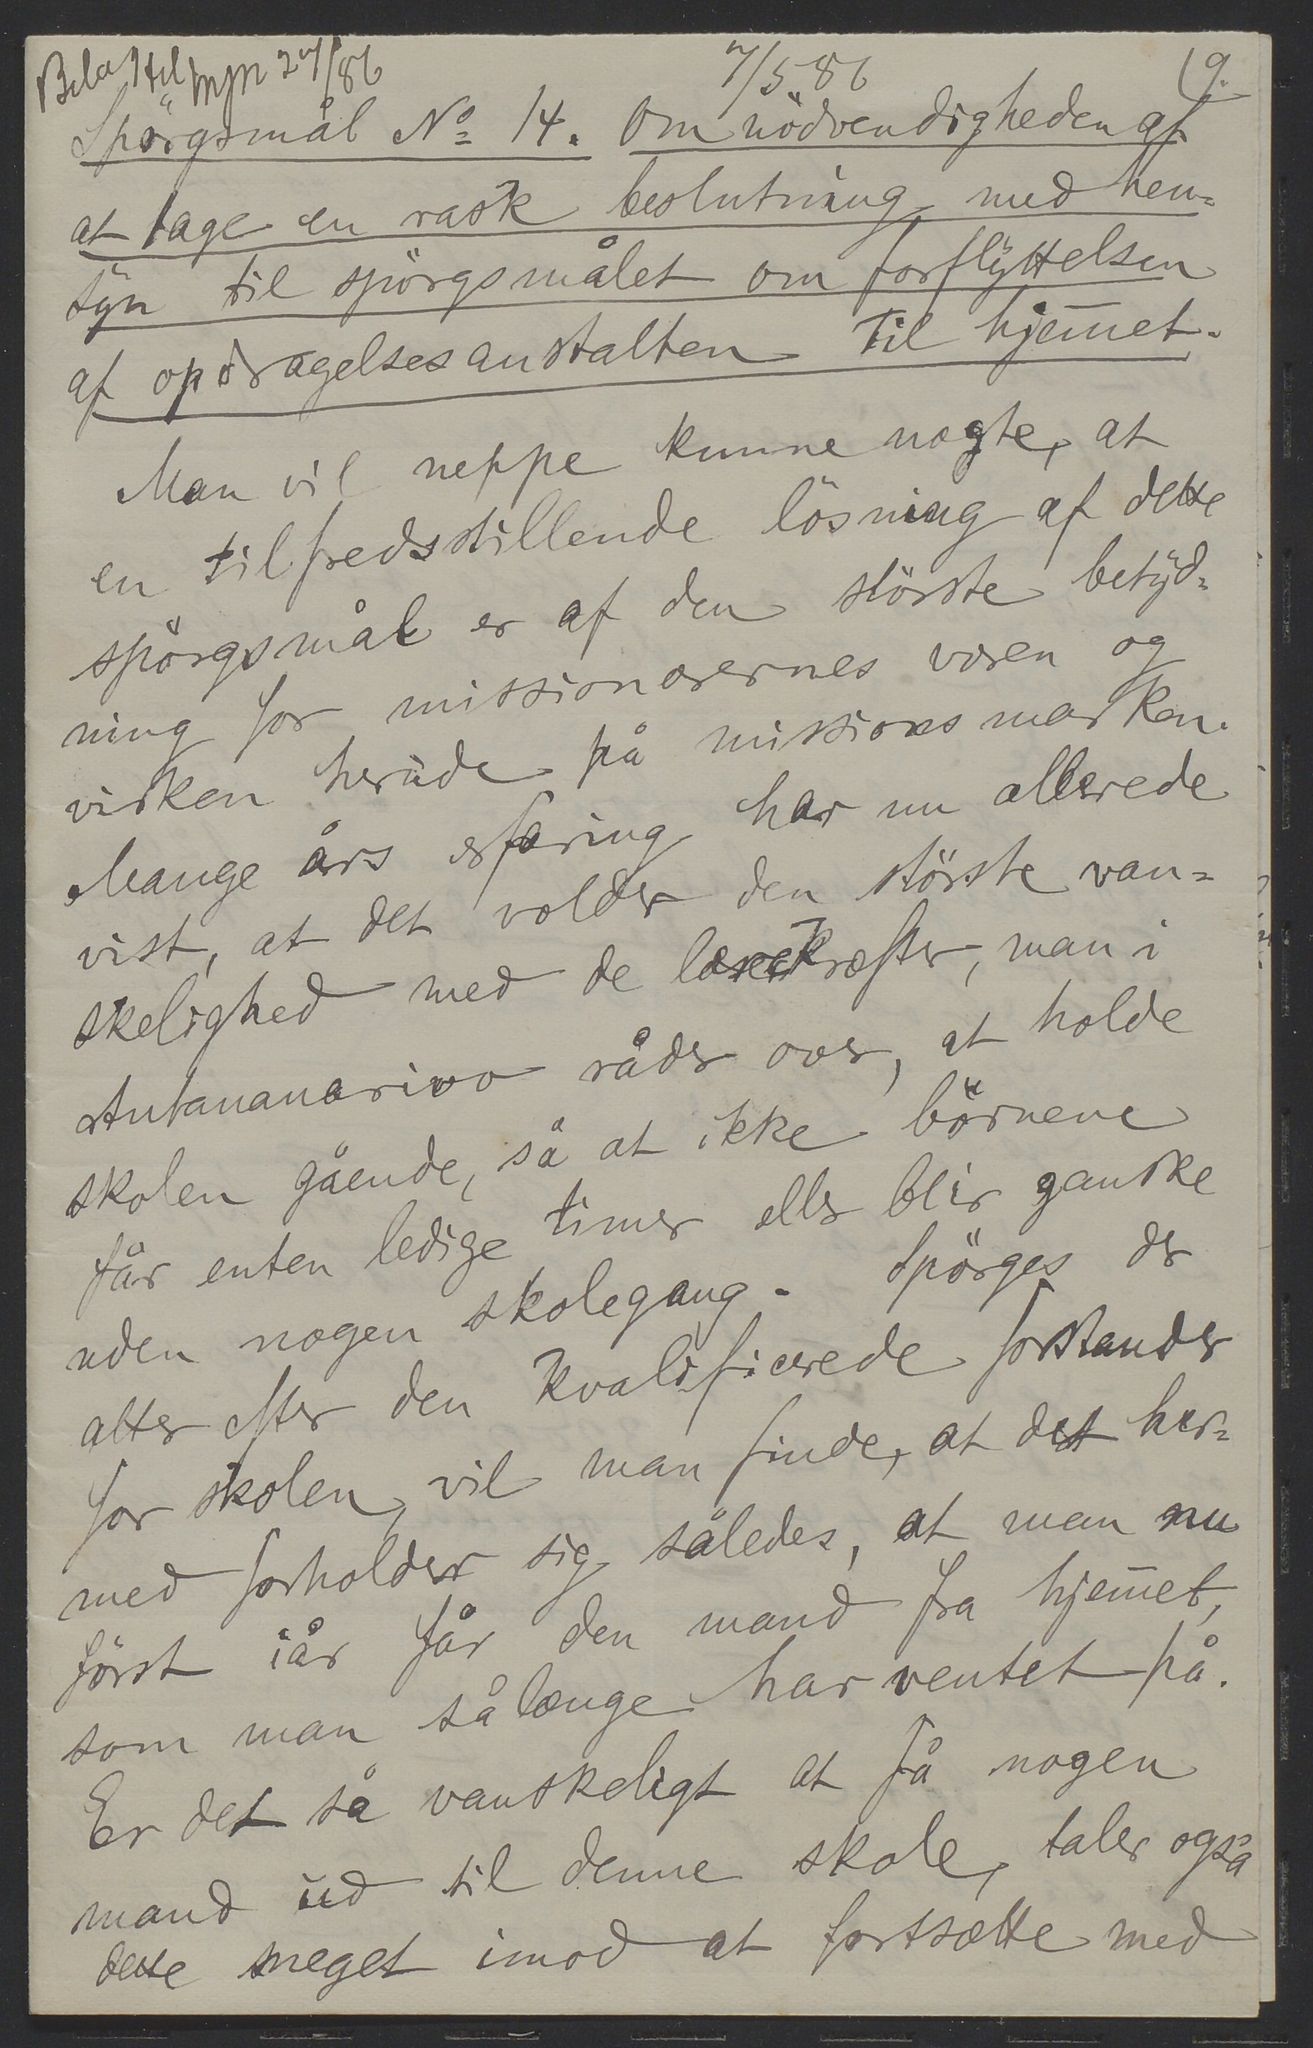 7/5 86
19.
Spörgsmål No 14. Om nödvendigheden af
at tage en rask beslutning med hen=
syn til spörgsmålet om forflyttelsen
af opdragelsesanstalten til hjem̅et.
Man vil neppe kunne nægte, at
en tilfredsstillende lösning af dette
spörgsmål er af den störste betyd=
ning for missionærernes væren og
virken herude på missionsmarken.
Mange års erfaring har nu allerede
vist, at det volder den störste van=
skelighed med de lærekræfter, man i
Antananarivo råder over, at holde
skolen gående, så at ikke börnene
får enten ledige timer eller blir ganske
uden nogen skolegang. Spörges der
atter efter den kvalificerede forstander
for skolen, vil man finde, at det her=
med forholder sig således, at man nu
först iår får den mand fra hjem̅et,
som man sålænge har ventet på.
Er det så vanskeligt at få nogen
mand ud til denne skole, taler også
dette meget imod at fortsætte med